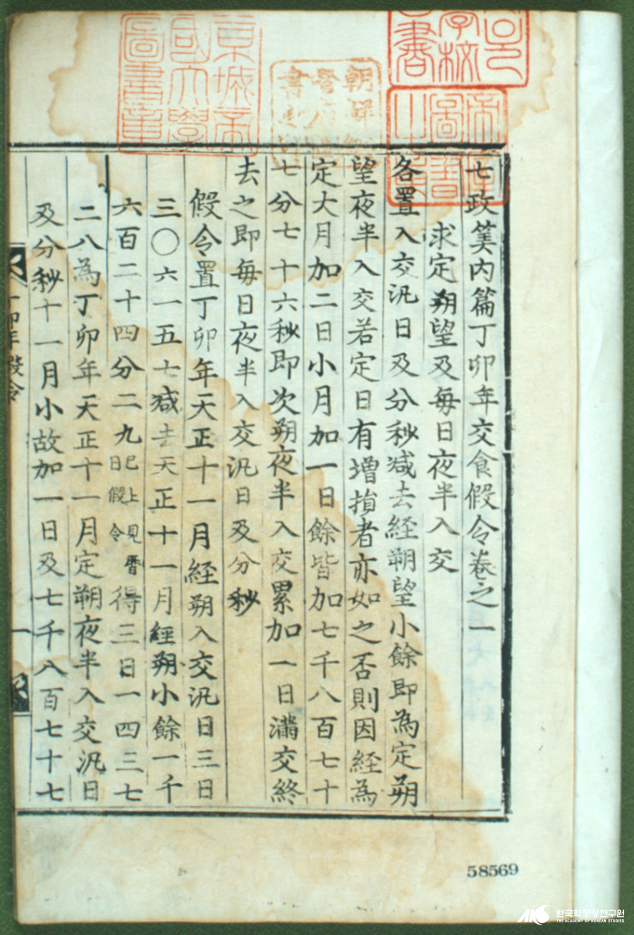 七政筭內篇丁卯年交食假令卷之一
求定朔望及每日夜半入交
各置入交汎日及分秒减去經朔望小餘即為定朔
望夜半入交若定日有增損者亦如之否則因經為
定大月加二日小月加一日餘皆加七千八百七十
七分七十六秒即次朔夜半入交累加一日滿交終
去之即每日夜半入交汎日及分秒
假令置丁卯年天正十一月經朔入交汎日三日
三〇六一五七减去天正十一月經朔小餘一千
六百二十四分二九已上見曆日假令得三日一四三七
二八為丁卯年天正十一月定朔夜半入交汎日
及分秒十一月小故加一日及七千八百七十七
卯年假令
一
京城帝國大學圖書章
58569
한국학중앙연구원
THE ACADEMY OF KOREAN STUDIES